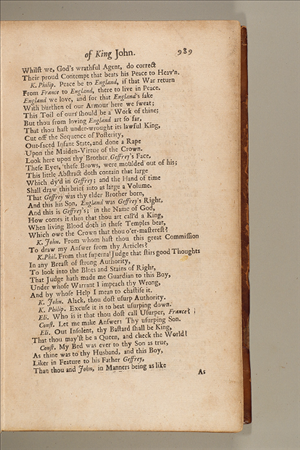 of King John. 989
Whilst we, God's wrathful Agent, do correct
Their proud Contempt that beats his Peace to Heav'n.
K. Philip. Peace be to England, if that War return
From France to England, there to live in Peace.
England we love, and for that England's sake
With burthen of our Armour here we sweat;
This Toil of ours should be a Work of thine;
But thou from loving England art so far,
That thou hast under-wrought its lawful King,
Cut off the Sequence of Posterity,
Out-faced Infant State, and done a Rape
Upon the Maiden-Virtue of the Crown.
Look here upon thy Brother Geffrey's Face,
These Eyes, these Brows, were moulded out of his;
This little Abstract doth contain that large
Which dy'd in Geffrey; and the Hand of time
Shall draw this brief into as large a Volume.
That Geffrey was thy elder Brother born,
And this his Son, England was Geffrey's Right,
And this is Geffrey's; in the Name of God,
How comes it then that thou art call'd a King,
When living Blood doth in these Temples beat,
Which owe the Crown that thou o'er-masterest?
K. John. From whom hast thou this great Commission
To draw my Answer from thy Articles?
K. Phil. From that supernal Judge that stirs good Thoughts
In any Breast of strong Authority,
To look into the Blots and Stains of Right,
That Judge hath made me Guardian to this Boy,
Under whose Warrant I impeach thy Wrong,
And by whose Help I mean to chastise it.
K. John. Alack, thou dost usurp Authority.
K. Philip. Excuse it is to beat usurping down.
Eli. Who is it that thou dost call Usurper, France?
Const. Let me make Answer: Thy usurping Son.
Eli. Out Insolent, thy Bastard shall be King,
That thou may'st be a Queen, and check the World!
Const. My Bed was ever to thy Son as true,
As thine was to thy Husband, and this Boy,
Liker in Feature to his Father Geffrey,
Than thou and John, in Manners being as like
As